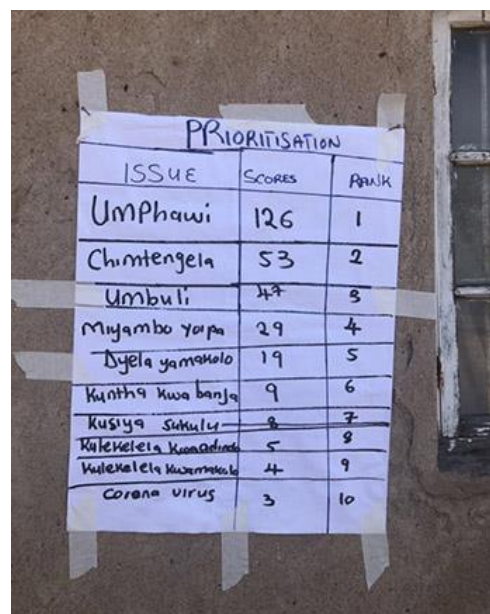 PRIORITISATION
ISSUE SCORES RANK
Umphawi 126 1
Chimtengela 53 2
Umbuli 47 3
Miyambo yoipa 29 4
Dyela yamakolo 19 5
Kuntha kwa banja 9 6
Kusiya sukulu 8 7
Kulekelela 5 8
Kulekelela kwamakolo 4 9
Corona virus 3 10